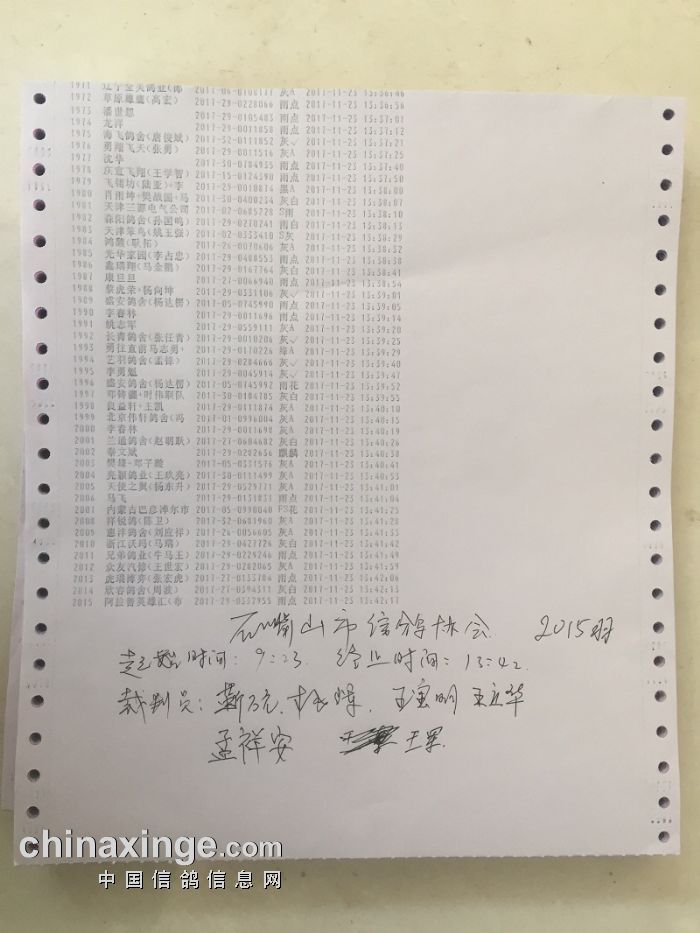 1972 草原雄鹰(高宏) 2017-29-0228066 雨点 2017-11-23 13:36:56
1973 潘世恩 2017-29-0105483 雨点 2017-11-23 13:37:01
1974 龙祥 2017-29-0011058 雨点 2017-11-23 13:37:12
1975 海飞鸽舍(唐俊斌) 2017-32-0111852 灰 2017-11-23 13:37:21
1976 勇翔飞天(张勇) 2017-29-0011516 灰A 2017-11-23 13:37:25
1977 沈华 2017-30-0704935 雨点 2017-11-23 13:37:40
1978 庆宣飞翔(王学智) 2017-15-0124598 雨点 2017-11-23 13:37:50
1979 2017-29-0010874 黑A 2017-11-23 13:38:00
1980 2017-30-0400234 灰白 2017-11-23 13:38:07
1981 天津三源电气公司 2017-02-0685728 S雨 2017-11-23 13:38:10
1982 森阳鸽舍(孙国鸣) 2017-29-0270241 雨白 2017-11-23 13:38:13
1983 天津笨鸟(姚玉强) 2017-02-0333410 S灰 2017-11-23 13:38:29
1984 2017-26-0070606 灰A 2017-11-23 13:38:32
1985 光华家园(李占忠) 2017-29-0408553 雨点 2017-11-23 13:38:38
1986 鑫瑞翔(马金鹏) 2017-29-0167764 灰白 2017-11-23 13:38:41
1987 康旦旦 2017-27-0066940 雨点 2017-11-23 13:38:54
1988 蔡虎荣+杨向坤 2017-29-0331106 灰 2017-11-23 13:39:01
1989 盛安鸽舍(杨达楞) 2017-05-0745990 雨点 2017-11-23 13:39:05
1990 李春林 2017-29-0011696 雨点 2017-11-23 13:39:14
1991 姚志军 2017-29-0559111 灰A 2017-11-23 13:39:20
1992 长青鸽舍(张任青) 2017-29-0010206 灰 2017-11-23 13:39:25
1993 勇往直前马志勇+ 2017-29-0170226 绛A 2017-11-23 13:39:29
1994 艺羽鸽舍(孟锋) 2017-29-0204666 灰 2017-11-23 13:39:40
1995 李勇魁 2017-29-0045914 灰 2017-11-23 13:39:47
1996 盛安鸽舍(杨达楞) 2017-05-0745992 雨花 2017-11-23 13:39:52
1997 邓铸疆+时伟联队 2017-30-0184785 灰白 2017-11-23 13:39:55
1998 良益轩+王凯 2017-29-0111874 灰A 2017-11-23 13:40:15
1999 北京伟轩鸽舍(冯 2017-01-0996004 灰A 2017-11-23 13:40:19
2000 李春林 2017-29-0011698 灰A 2017-11-23 13:40:26
2001 兰通鸽舍(赵朝跃) 2017-27-0604682 灰白 2017-11-23 13:40:30
2002 秦文斌 2017-29-0202656 麒麟 2017-11-23 13:40:38
2003 樊雄+邓子璇 2017-05-0331576 灰A 2017-11-23 13:40:41
2004 亮颖鸽业(王玖亮) 2017-30-0111499 灰A 2017-11-23 13:40:53
2005 天使之翼(杨东升) 2017-29-0529771 灰A 2017-11-23 13:41:01
2006 马飞 2017-29-0131831 雨点 2017-11-23 13:41:04
2007 内蒙古巴彦淖尔市 2017-05-0990040 PS花 2017-11-23 13:41:25
2008 祥锐鸽(陈卫) 2017-32-0601960 灰A 2017-11-23 13:41:28
2009 惠洋鸽舍(刘应祥) 2017-26-0056605 灰A 2017-11-23 13:41:35
2010 浙江沃玛(马瑞) 2017-29-0427726 灰白 2017-11-23 13:41:42
2011 兄弟鸽业(牛马王) 2017-29-0229246 雨点 2017-11-23 13:41:49
2012 众友汽修(王世宏) 2017-29-0202065 灰A 2017-11-23 13:41:59
2013 虎琅博弈(张宏虎) 2017-27-0133704 雨点 2017-11-23 13:42:06
2014 欣睿鸽舍(周波) 2017-27-0594311 灰白 2017-11-23 13:42:13
2015 阿拉善英雄汇(布 2017-29-0332955 雨点 2017-11-23 13:42:17
石嘴山市信鸽协会 2015羽
起始时间:9:23. 终止时间:13:42
裁判员: 王宝明 王立华
孟祥安 王军
chinaxinge.com
中国信鸽信息网